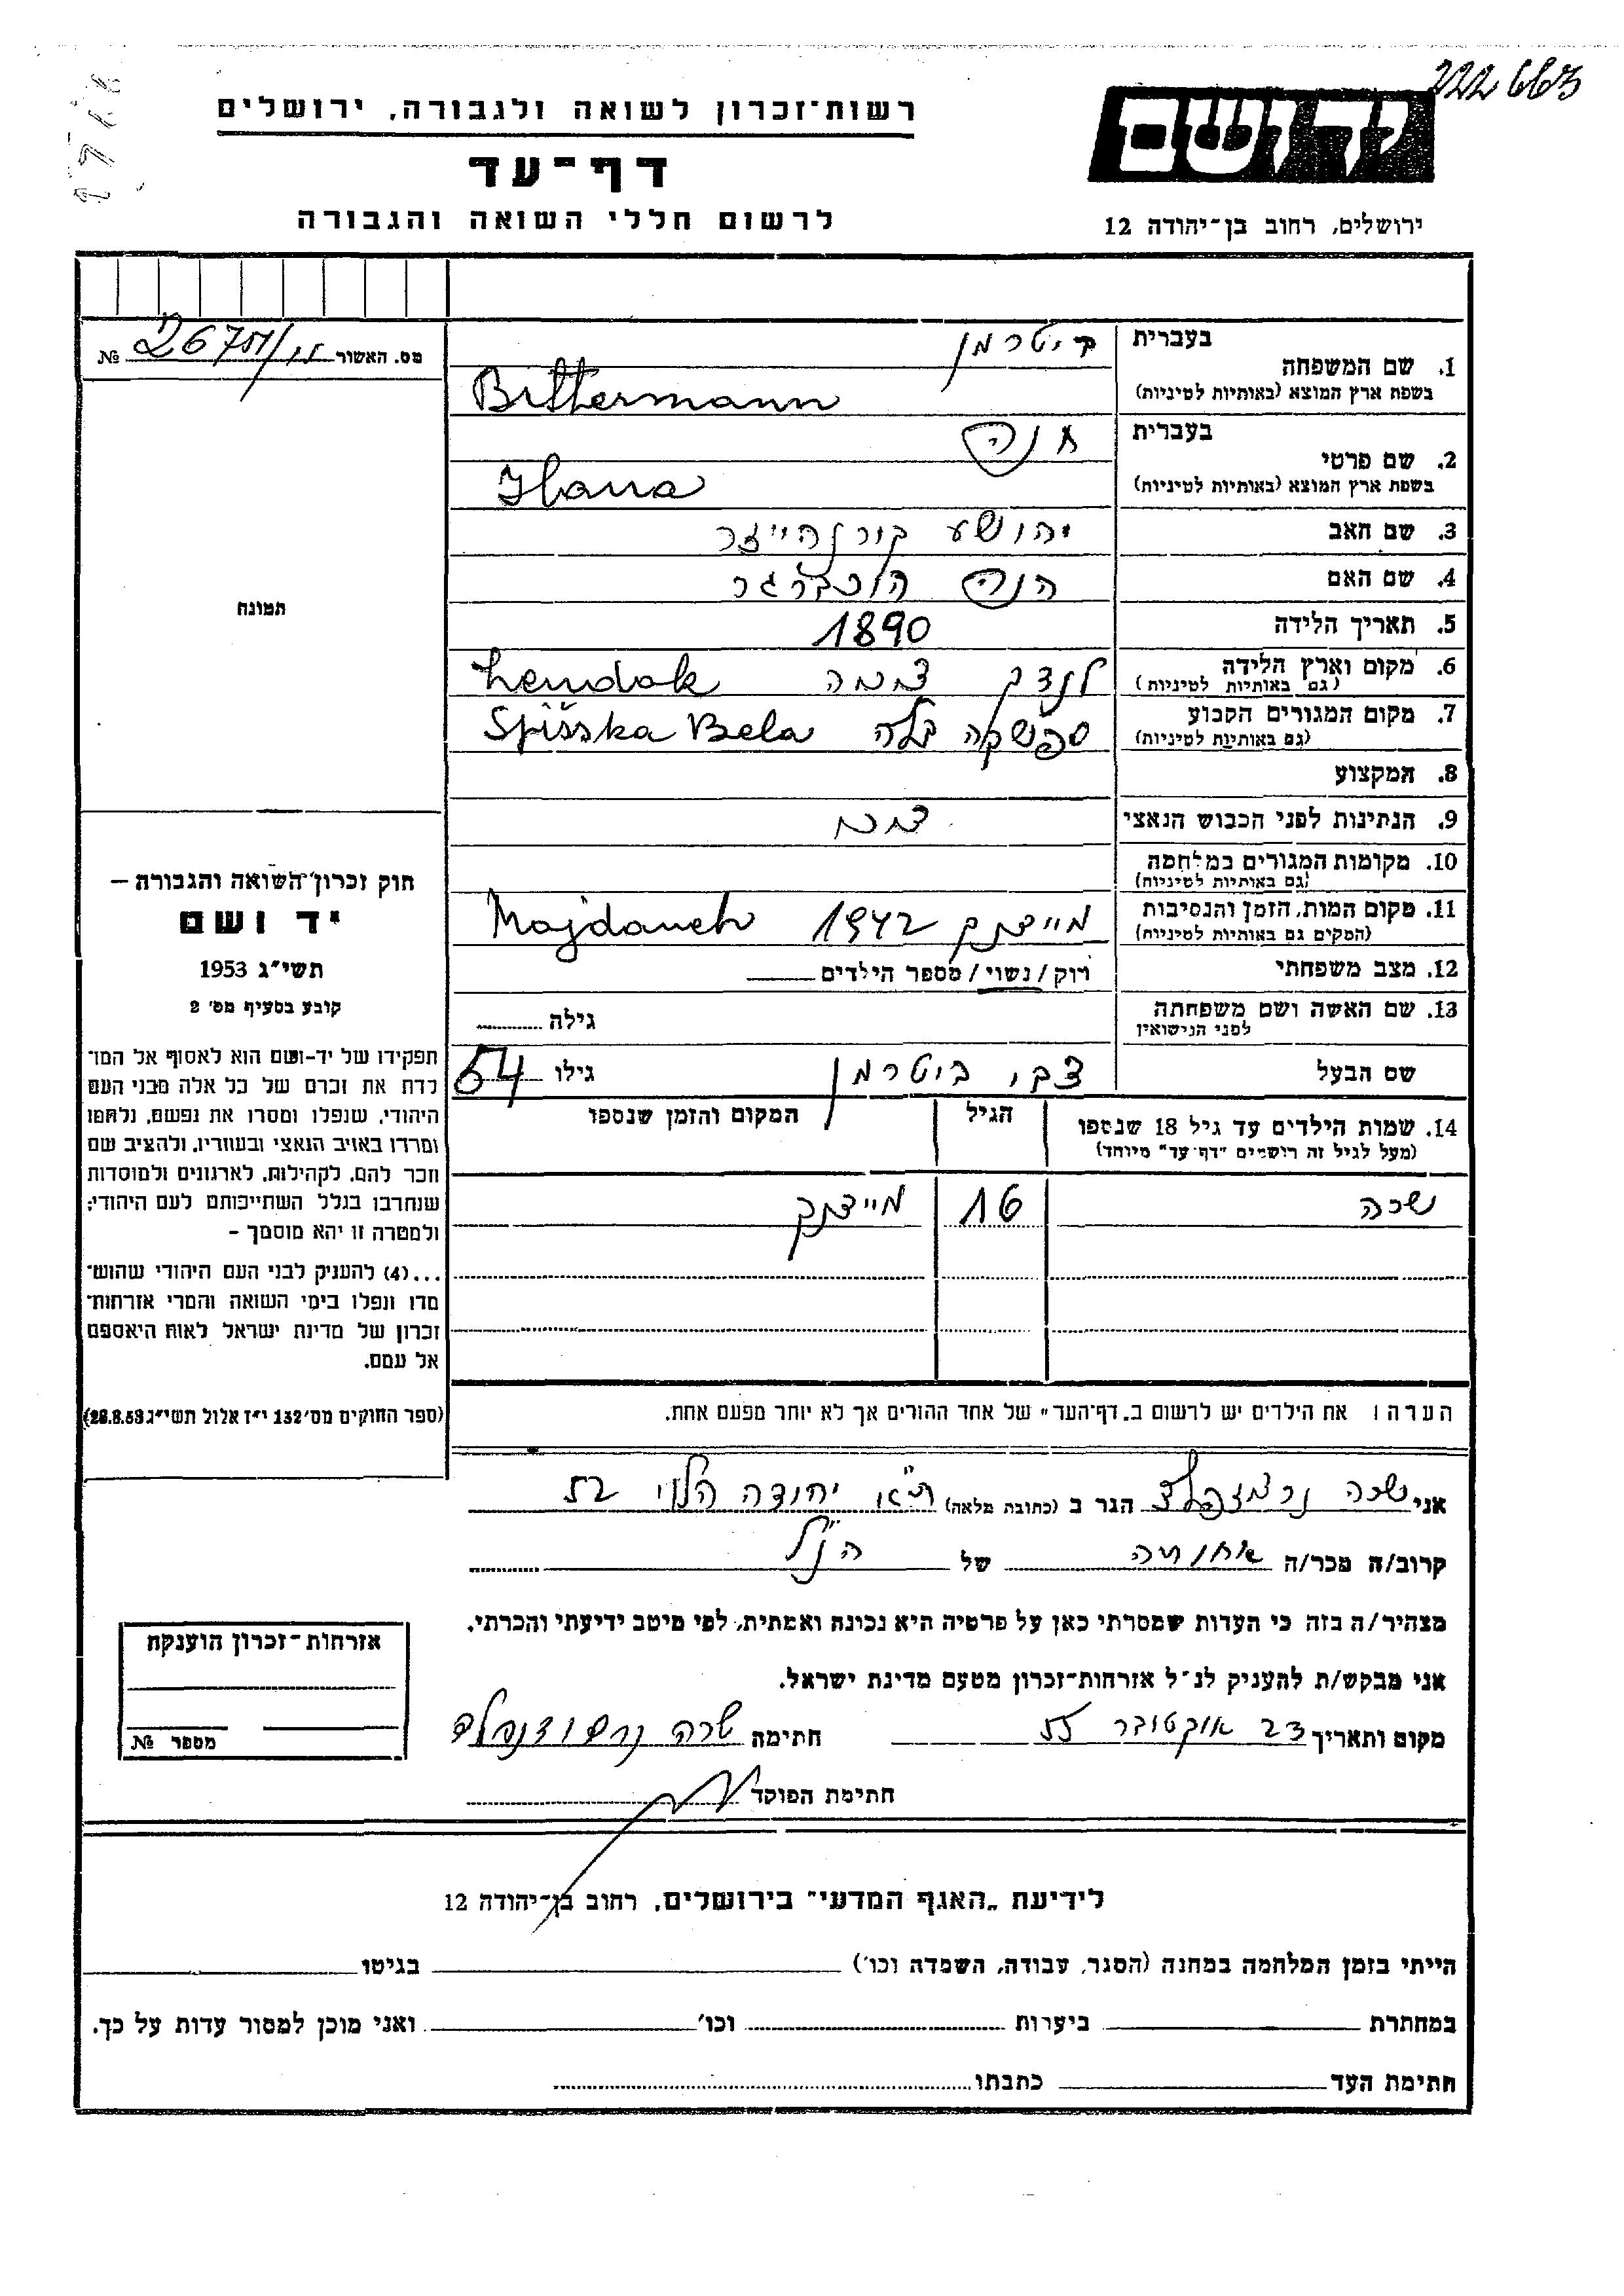 222663
רשות־זכרון לשואה ולגבורה, ירושלים
דף־עד
לרשום חללי השואה והגבורה
יד ושם
ירושלים, רחוב בן־יהודה 12
מס. האשור № 2675
תמונה
1. שם המשפחה
בעברית
ביטרמן
בשפת ארץ המוצא (באותיות לטיניות)
Bittermann
2. שם פרטי
בעברית
חנה
בשפת ארץ המוצא (באותיות לטיניות)
Hana
3. שם האב
יהושע קורנהייזר
4. שם האם
הנה הוכברגר
5. תאריך הלידה 1890
6. מקום וארץ הלידה
(גם באותיות לטיניות)
לנדק Lendak
7. מקום המגורים הקבוע
(גם באותיות לטיניות)
ספישקה בלה Spišska Bela
8. המקצוע
9. הנתינות לפני הכבוש הנאצי
10. מקומות המגורים במלחמה
(גם באותיות לטיניות)
11. מקום המות, הזמן והנסיבות
(המקום גם באותיות לטיניות)
מיידנק 1942 Majdanek
12. מצב משפחתי
רוק / נשוי / מספר הילדים
13. שם האשה ושם משפחתה
לפני הנישואין
גילה
שם הבעל
צבי ביטרמן גילו 54
14. שמות הילדים עד גיל 18 שנספו
(מעל לגיל זה רישמים "דף־עד" מיוחד)
הגיל
המקום והזמן שנספו
שרה 16 מיידנק
חוק זכרון השואה והגבורה –
יד ושם
תשי״ג 1953
קובע בסעיף מס׳ 2
תפקידו של יד-ושם הוא לאסוף אל המו־
לדת את זכרם של כל אלה מבני העם
היהודי, שנפלו ומסרו את נפשם, נלחמו
ומרדו באויב הנאצי ובעוזריו, ולהציב שם
וזכר להם, לקהילות, לארגונים ולמוסדות
שנחרבו בגלל השתייכותם לעם היהודי;
ולמטרה זו יהא מוסמך –
...(4) להעניק לבני העם היהודי שהוש־
מדו ונפלו בימי השואה והמרי אזרחות־
זכרון של מדינת ישראל לאות היאספם
אל עמם.
(ספר החוקים מס׳ 132 י״ז אלול תשי״ג 28.8.53)
הערה: את הילדים יש לרשום ב„דף־העד" של אחד ההורים אך לא יותר מפעם אחת.
אני שרה הגר ב (כתובת מלאה) ת״א יהודה הלוי 52
קרוב/ה מכר/ה אחותה של הנ״ל
מצהיר/ה בזה כי העדות שמסרתי כאן על פרטיה היא נכונה ואמתית, לפי מיטב ידיעתי והכרתי.
אני מבקש/ת להעניק לנ״ל אזרחות־זכרון מטעם מדינת ישראל.
מקום ותאריך 23 אוקטובר 55 חתימה שרה
חתימת הפוקד
אזרחות־זכרון הוענקה
מספר №
לידיעת „האגף המדעי" בירושלים, רחוב בן־יהודה 12
הייתי בזמן המלחמה במחנה (הסגר, עבודה, השמדה וכו׳) בגיטו
במחתרת ביערות וכו׳ ואני מוכן למסור עדות על כך.
חתימת העד כתבתו